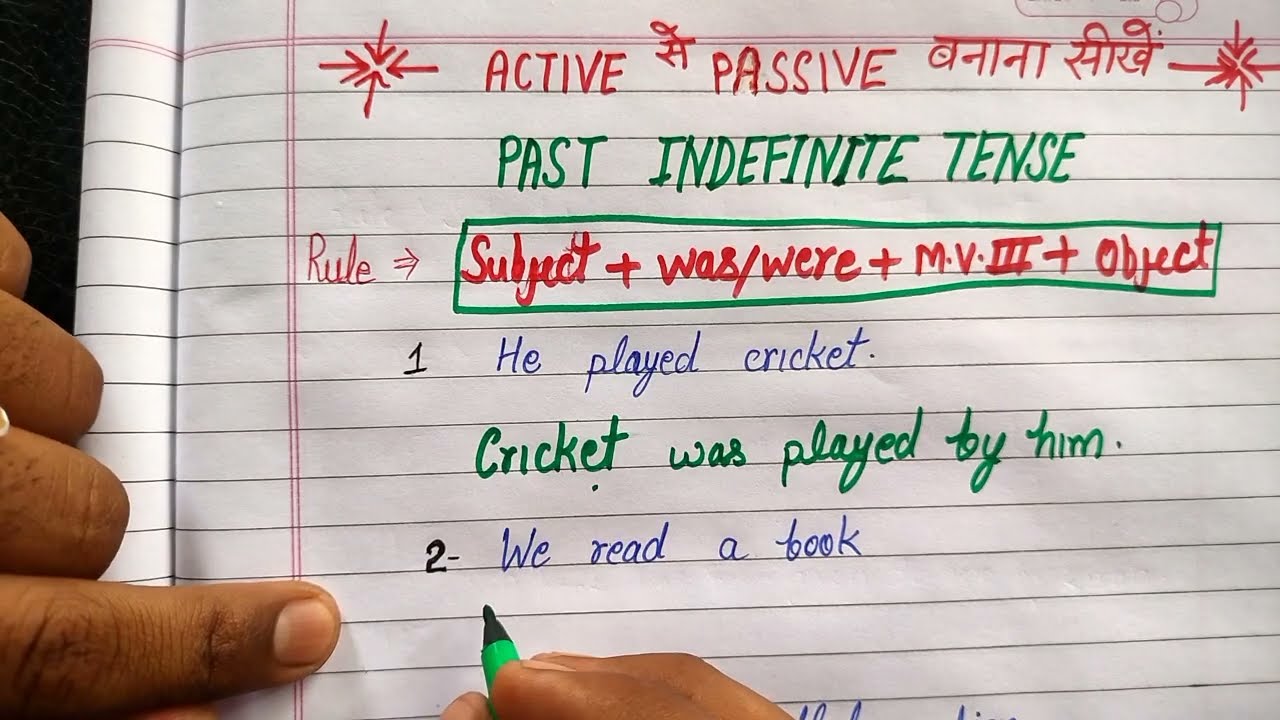 ACTIVE से PASSIVE बनाना सीखें
PAST INDEFINITE TENSE
Rule ⇒ Subject + was/were + M.V.III + Object
1 He played cricket.
Cricket was played by him.
2- We read a book